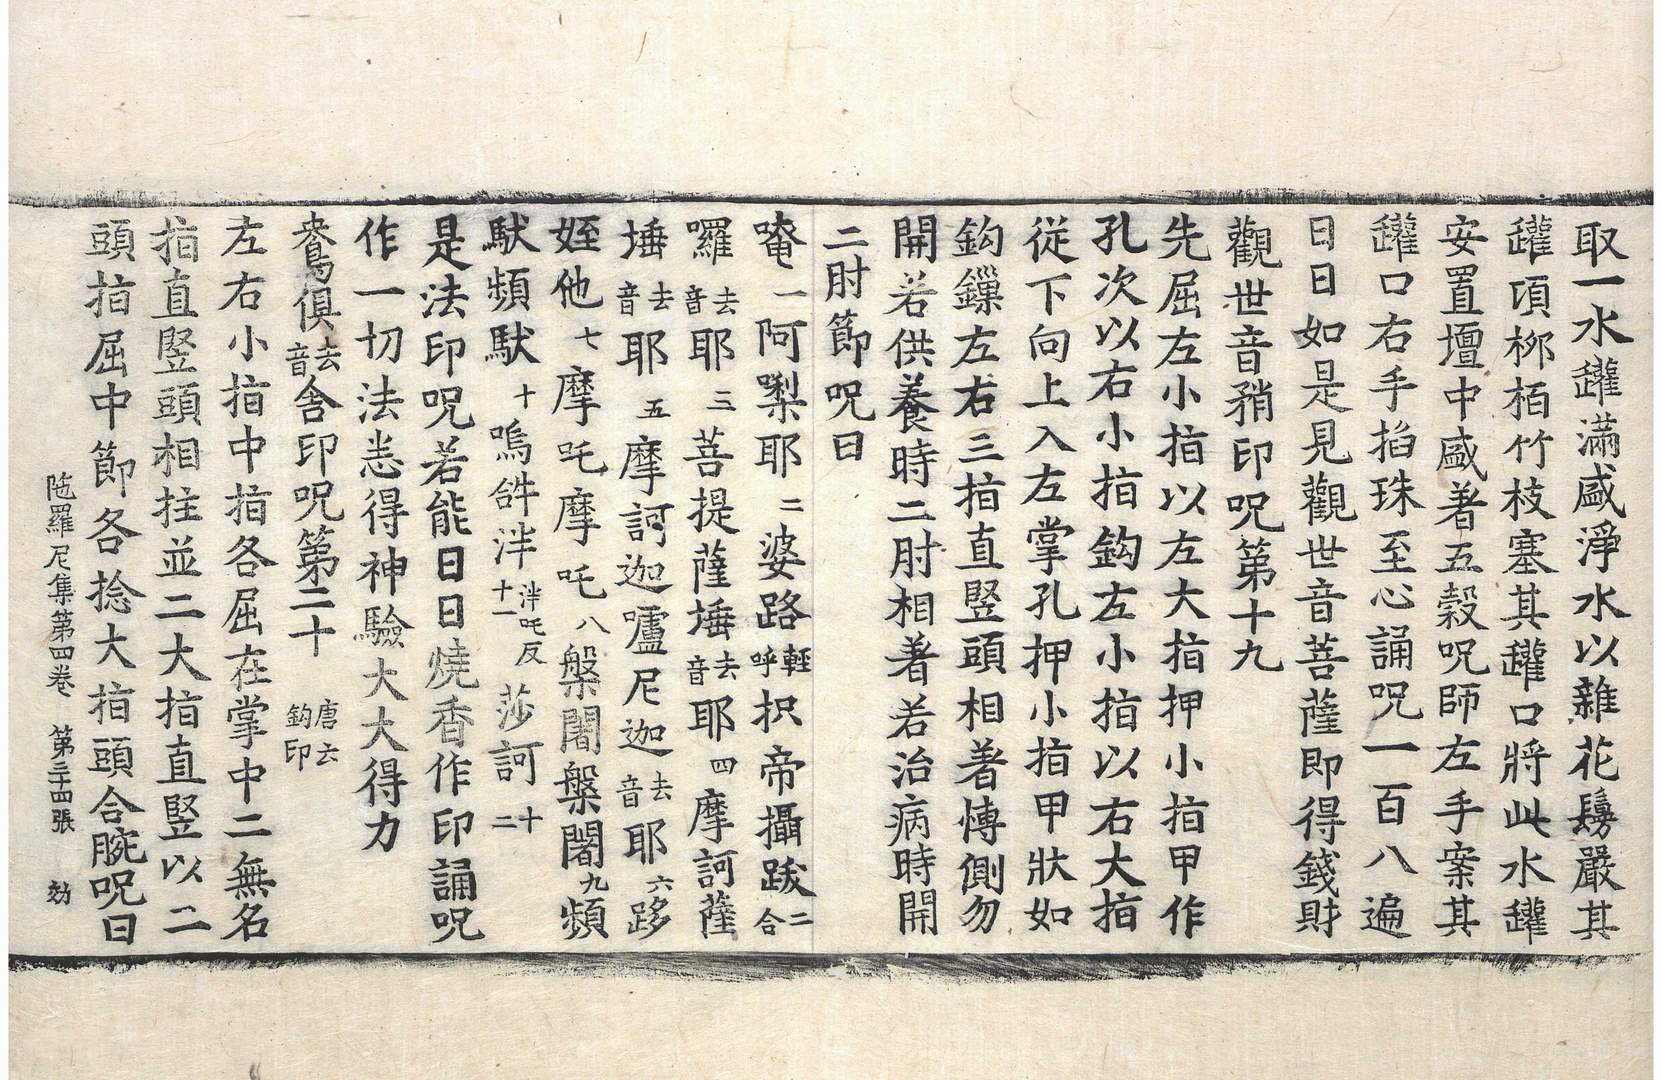 取一水罐滿盛淨水以雜花鬘嚴其
罐項栁栢竹枝塞其罐口將此水罐
安置壇中盛著五穀呪師左手案其
罐口右手掐珠至心誦呪一百八遍
日日如是見觀世音菩薩即得錢財
觀世音矟印呪第十九
先屈左小指以左大指押小指甲作
孔次以右小指鈎左小指以右大指
從下向上入左掌孔押小指甲狀如
鈎鏁左右三指直竪頭相著慱側勿
開若供養時二肘相著若治病時開
二肘節呪曰
唵一阿㗚耶二婆路輕呼抧帝攝跋二合
囉去音耶三菩提薩埵去音耶四摩訶薩
埵去音耶五摩訶迦嚧尼迦去音耶六跢
姪他七摩吒摩吒八槃闍槃闍九頻
馱頻馱十嗚𤙖泮泮吒反十一莎訶十二
是法印呪若能日日燒香作印誦呪
作一切法恚得神驗大大得力
鴦俱去音舍印呪第二十唐云鈎印
左右小指中指各屈在掌中二無名
指直竪頭相拄並二大指直竪以二
陁羅尼集第四卷 第三十四張 効
頭指屈中節各捻大指頭合腕呪曰